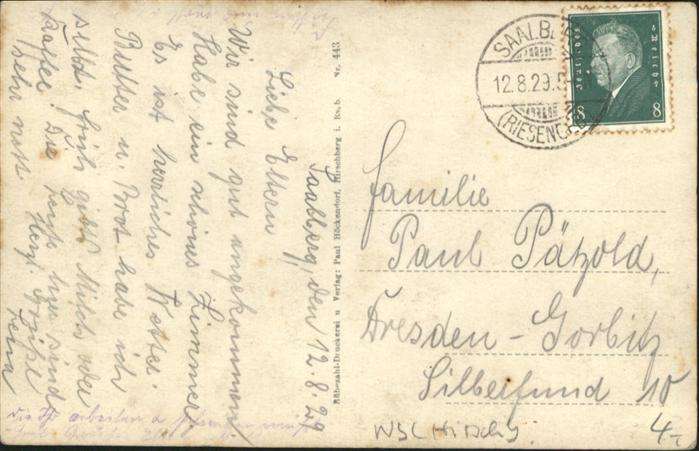 Saalberg, den 12.8.29
Liebe Eltern
Wir sind gut angekommen
Habe ein schönes Zimmer
Es ist herrliches Wetter.
Butter u. Brot habe ich
selbst. Früh gibt Milch oder
Kaffee. Die Leute hier sind
sehr nett. Herzl. Grüße
Lena
Rübezahl-Druckerei u. Verlag: Paul Höckendorf, Hirschberg i. Rsgb. Nr. 443
SAALBERG
12.8.29.5
(RIESENGEB)
Deutsches Reich
8 8
Familie
Paul Pätzold,
Dresden-Gorbitz
Silberfund 10
4,-